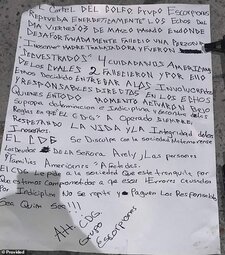 EL Cartel DEL GOLFO Grupo Escorpiones
REPRUEBA ENERGETICAMENTE LOS Echos DEL
DIA VIERNES 03 DE MARZO PASADO EN DONDE
DESAFORTUNADAMENTE FALLECIO UNA PERSONA
Inosente MADRE TRABAJADORA y FUERON
SEVESTRADOS 4 CUIDADANOS AMERICANOS
DE LOS CUALES 2 FALLECIERON y POR ELLO
EMOS Decidido ENTREGAR ALAS INVOLUCRADOS
Y RESPONSABLES DIRECTOS EN LOS Echos
QUIENES EN TODO MOMENTO ACTUARON BAJO
SU propia determinacion e Indiciplina y
Reglas en las que EL CDG A Operado SIEMPRE
RESPETANDO LA VIDA y LA Integridad de los
Inosentes.
EL CDG Se Disculpa con la sociedad Matamorense
de la SEÑORA Arely y LAS personas
y Familias Americanas Afectadas.
El CDG Le pide A la sociedad que este tranquila por
que estamos Comprometidos A que esos Errores causados
Por Indiciplina No se repita y Paguen Los Responsables
Sea Quien Sea!!!
Att: CDG
Grupo
Escorpiones
Provided